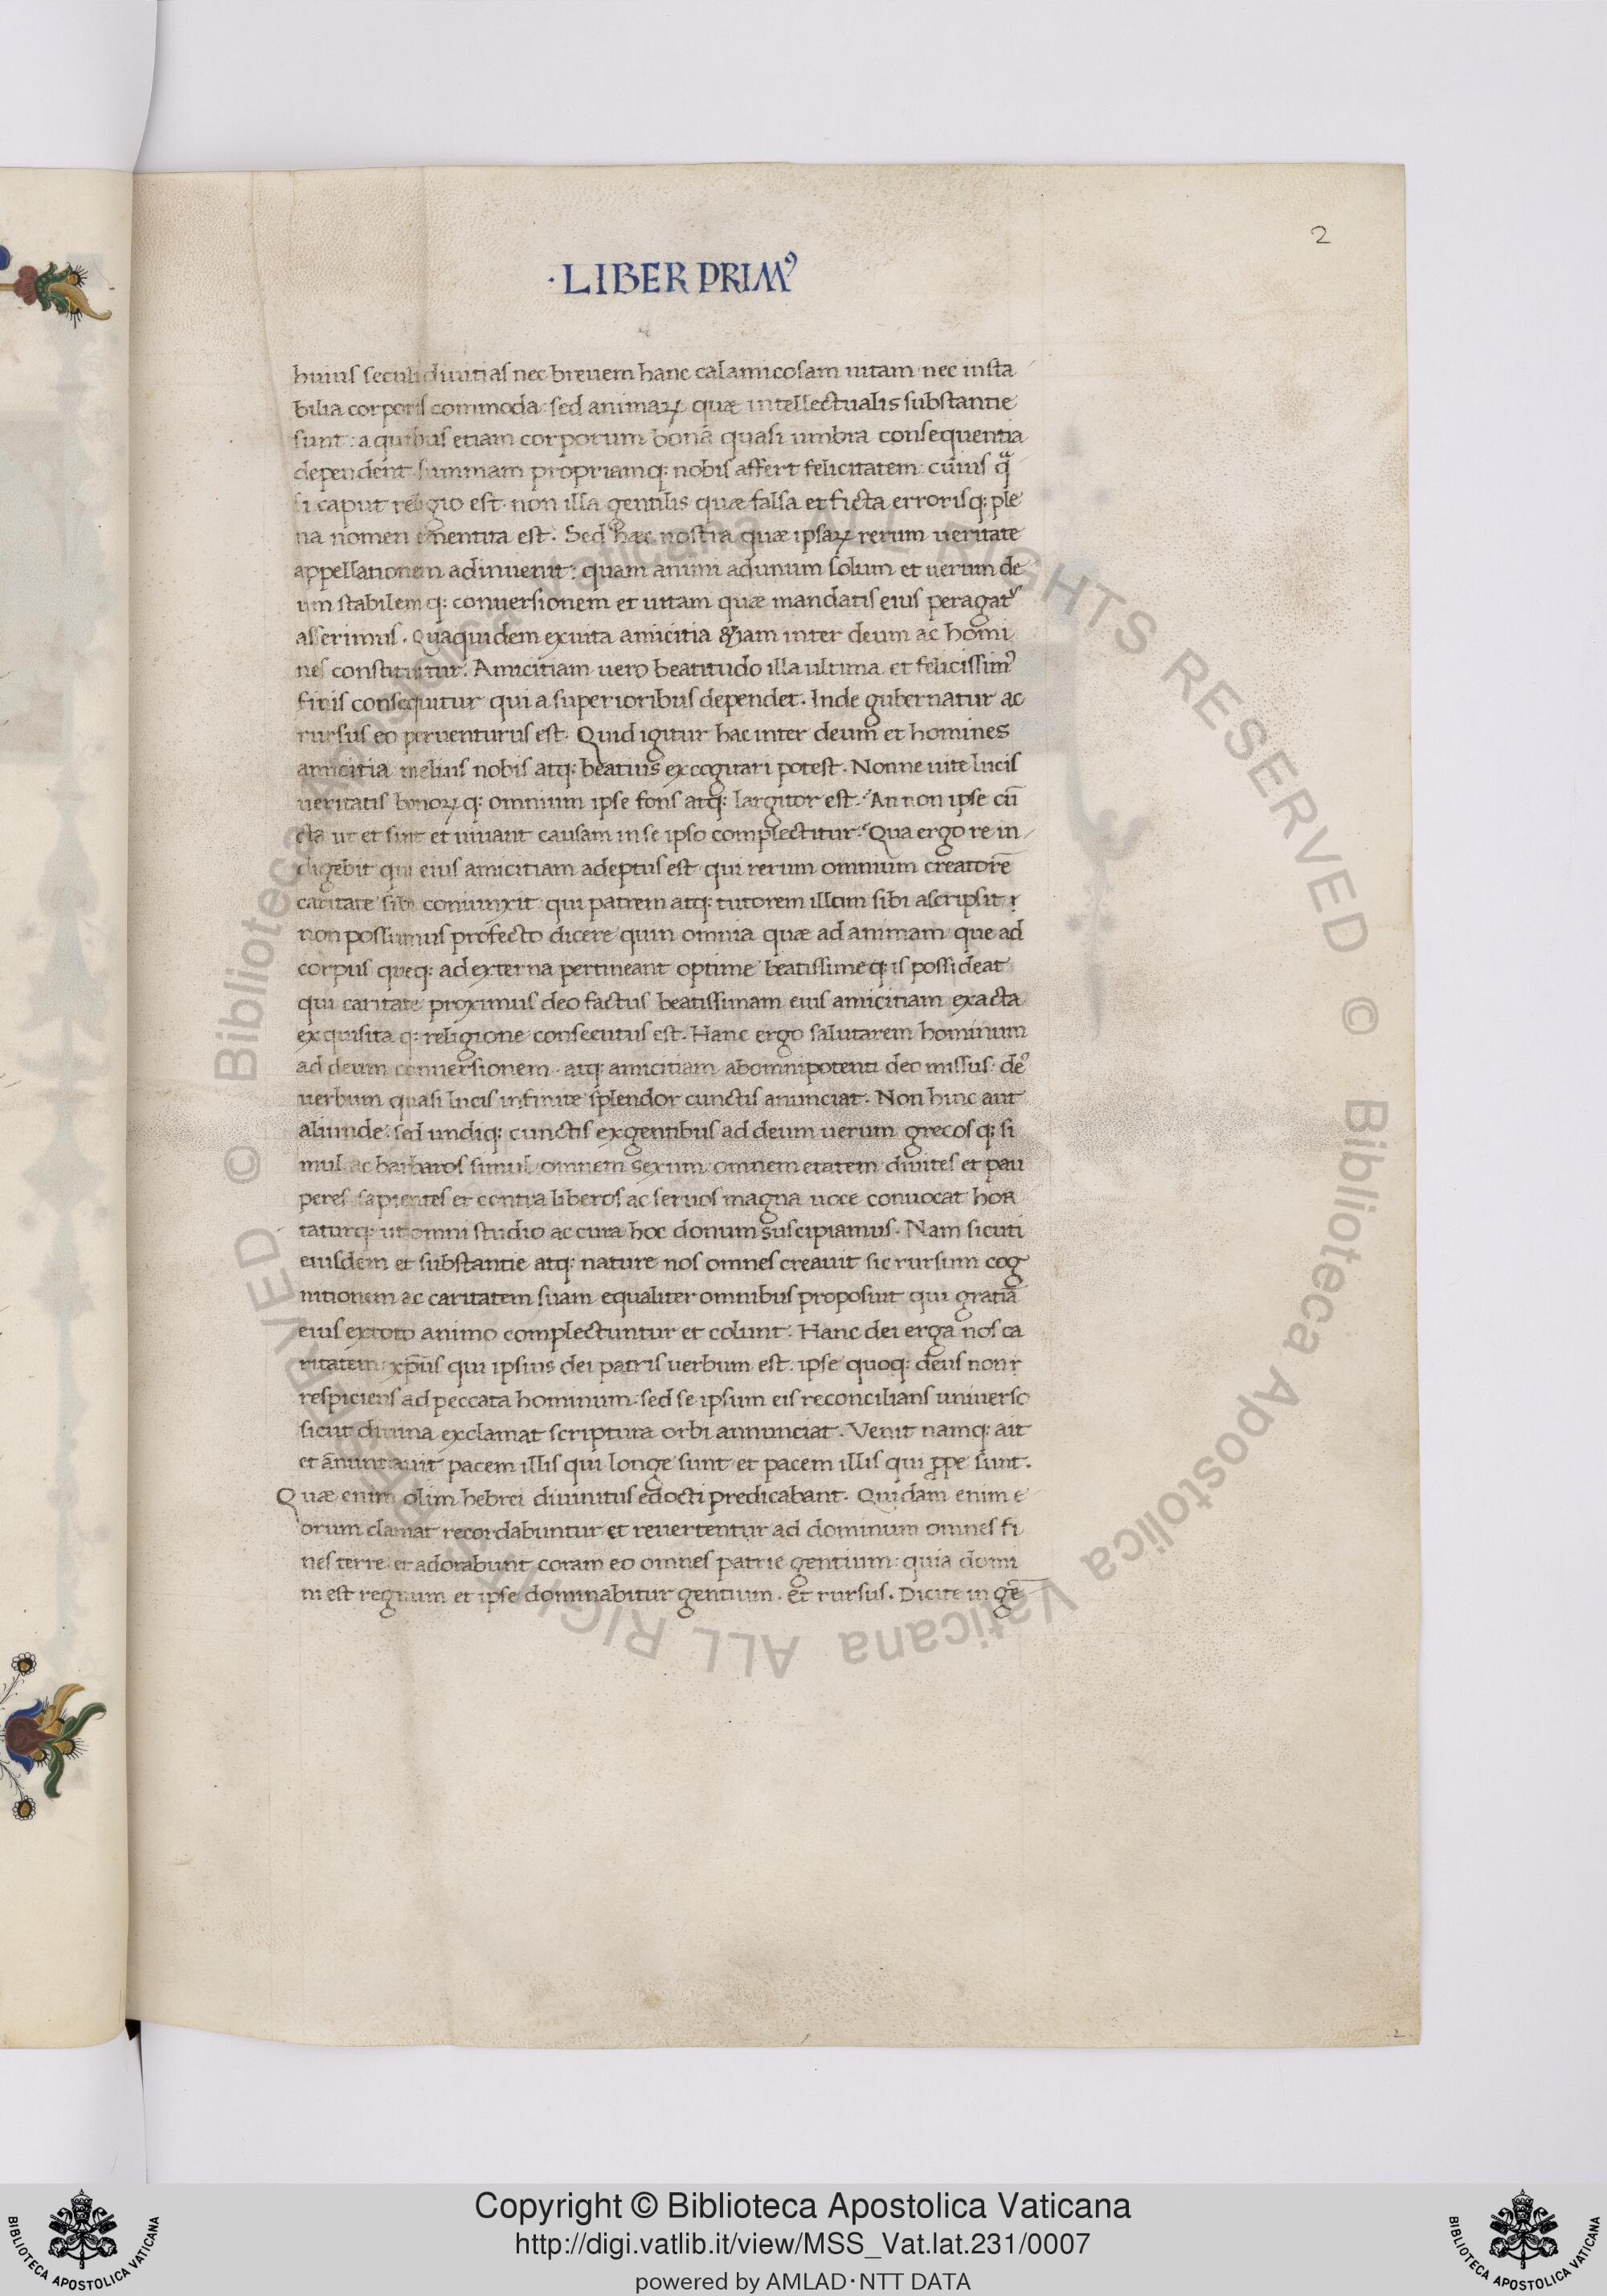 2
·LIBER PRIMꝰ
huius seculi diuitias nec breuem hanc calamicosam uitam nec insta
bilia corporis commoda: sed animaꝝ quæ intellectualis substantie
sunt: a quibus etiam corporum bona quasi umbra consequentia
dependent summam propriamq; nobis affert felicitatem: cuius qͣ
si caput religio est. non illa gentilis quæ falsa et ficta errorisq; ple
na nomen ementita est. Sed hæc nostra quæ ipsaꝝ rerum ueritate
appellationem adinuenit: quam animi ad unum solum et uerum de
um stabilemq; conuersionem et uitam quæ mandatis eius peragat᷑
asserimus. Qua quidem ex uita amicitia etiam inter deum ac homi
nes constituitur. Amicitiam uero beatitudo illa ultima et felicissimꝰ
finis consequitur qui a superioribus dependet. Inde gubernatur ac
rursus eo peruenturus est. Quid igitur hac inter deum et homines
amicitia melius nobis atq; beatius excogitari potest. Nonne uite lucis
ueritatis bonoꝝq; omnium ipse fons atq; largitor est. An non ipse cū
cta ut et sint et uiuant causam in se ipso complectitur. Qua ergo re in
digebit qui eius amicitiam adeptus est qui rerum omnium creatorē
caritate sibi coniunxit qui patrem atq; tutorem illum sibi ascripsit
non possumus profecto dicere quin omnia quæ ad animam que ad
corpus queq; ad externa pertineant optime beatissimeq; is possideat
qui caritate proximus deo factus beatissimam eius amicitiam exacta
exquisitaq; religione consecutus est. Hanc ergo salutarem hominum
ad deum conuersionem atq; amicitiam ab omnipotenti deo missus deꝰ
uerbum quasi lucis infinite splendor cunctis anunciat. Non hinc aut
aliunde. sed undiq; cunctis ex gentibus ad deum uerum grecosq; si
mul ac barbaros simul omnem sexum omnem etatem diuites et pau
peres sapientes et contra liberos ac seruos magna uoce conuocat hor
taturq; ut omni studio ac cura hoc donum suscipiamus. Nam sicuti
eiusdem et substantie atq; nature nos omnes creauit sic rursum cog
nitionem ac caritatem suam equaliter omnibus proposuit qui gratiā
eius ex toto animo complectuntur et colunt. Hanc dei erga nos ca
ritatem xp̄us qui ipsius dei patris uerbum est. ipse quoq; deus non
respiciens ad peccata hominum. sed se ipsum eis reconcilians uniuerso
sicut diuina exclamat scriptura orbi annunciat. Venit namq; ait
et ānuntiauit pacem illis qui longe sunt et pacem illis qui ꝓpe sunt.
Quæ enim olim hebrei diuinitus edocti predicabant. Quidam enim e
orum clamat recordabuntur et reuertentur ad dominum omnes fi
nes terre. et adorabunt coram eo omnes patrie gentium: quia domi
ni est regnum et ipse dominabitur gentium. et rursus. Dicite in gē
2
© Biblioteca Apostolica Vaticana ALL RIGHTS RESERVED © Biblioteca Apostolica Vaticana ALL RIGHTS RESERVED
Copyright © Biblioteca Apostolica Vaticana
http://digi.vatlib.it/view/MSS_Vat.lat.231/0007
powered by AMLAD·NTT DATA
BIBLIOTECA APOSTOLICA VATICANA
BIBLIOTECA APOSTOLICA VATICANA